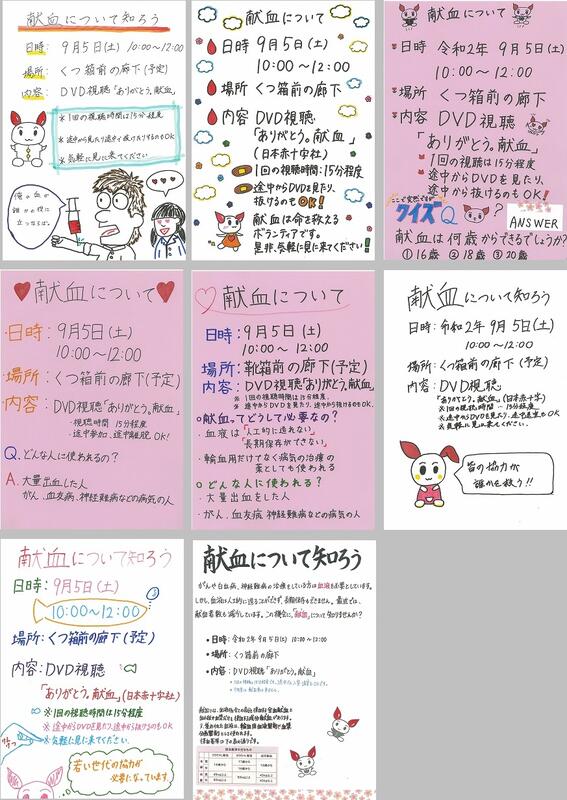 献血について知ろう
日時: 9月5日(土) 10:00〜12:00
場所: くつ箱前の廊下(予定)
内容: DVD視聴「ありがとう、献血」
※1回の視聴時間は15分程度
※途中から見たり途中で抜けたりするのもOK
※気軽に見に来てください
俺の血が
誰かの役に
立つならば。
献血について
日時 9月5日(土)
10:00〜12:00
場所 くつ箱前の廊下
内容 DVD視聴
「ありがとう。献血」
(日本赤十字社)
1回の視聴時間:15分程度
途中からDVDを見たり、
抜けるのもOK!
献血は命を救える
ボランティアです。
是非、気軽に見に来てください!
献血について
日時 令和2年 9月5日(土)
10:00〜12:00
場所 くつ箱前の廊下
内容 DVD視聴
「ありがとう。献血」
1回の視聴は15分程度
途中からDVDを見たり、
途中から抜けるのもOK!
ここで突然ですが
クイズQ ?
ANSWER
献血は何歳からできるでしょうか?
①16歳 ②18歳 ③20歳
献血について
・日時: 9月5日(土)
10:00〜12:00
・場所: くつ箱前の廊下(予定)
・内容: DVD視聴「ありがとう。献血」
・視聴時間 15分程度
・途中参加、途中離脱OK!
Q. どんな人に使われるの?
A. 大量出血した人
がん、血友病、神経難病などの病気の人
献血について
日時: 9月5日(土)
10:00〜12:00
場所: 靴箱前の廊下(予定)
内容: DVD視聴「ありがとう。献血」
※1回の視聴時間は15分程度。
※途中からDVDを見たり、途中から抜けるのもOK。
○献血ってどうして必要なの?
・血液は「人工的に造れない」
「長期保存ができない」
・輸血用だけでなく病気の治療の
薬としても使われる
○どんな人に使われる?
・大量出血をした人
・がん、血友病、神経難病などの病気の人
献血について知ろう
日時: 令和2年 9月5日(土)
10:00〜12:00
場所: くつ箱前の廊下(予定)
内容: DVD視聴
「ありがとう。献血」(日本赤十字)
※1回の視聴時間…15分程度
※途中からDVDを見たり、途中で抜けるのもOK
※気軽に見に来てください。
皆の協力が
誰かを救う!!
献血について知ろう
日時: 9月5日(土)
10:00〜12:00
場所: くつ箱前の廊下(予定)
内容: DVD視聴
「ありがとう。献血」(日本赤十字社)
※1回の視聴時間は15分程度
※途中からDVDを見たり、途中から抜けるのもOK
※気軽に見に来てください。
若い世代の協力が
必要になっています。
献血について知ろう
がんや白血病、神経難病の治療をしている方は血液を必要としています。
・日時: 令和2年 9月5日(土) 10:00〜12:00
・場所: くつ箱前の廊下
・内容: DVD視聴「ありがとう。献血」